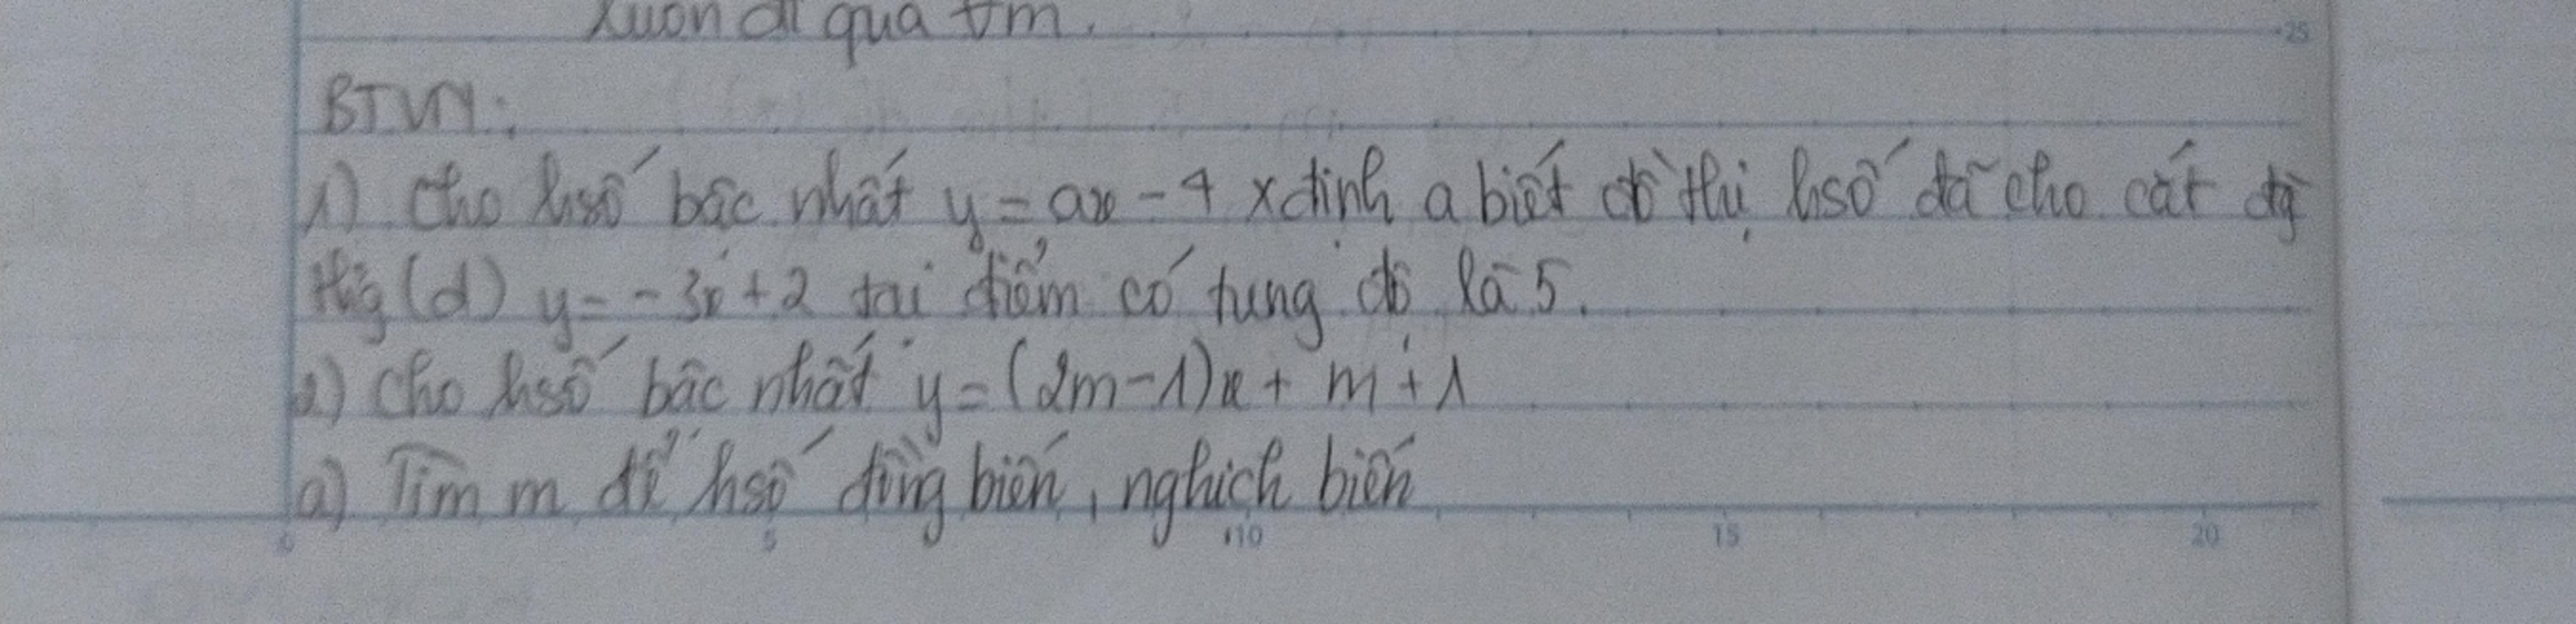 luôn đi qua ∀m.
25
BTVN:
1) Cho hsố bậc nhất y = ax - 4 xđịnh a biết đồ thị hsố đã cho cắt đg
thg (d) y = -3x + 2 tại điểm có tung độ là 5.
2) Cho hsố bậc nhất y = (2m-1)x + m + 1
a) Tìm m để hsố đồng biến, nghịch biến
0 5 10 15 20